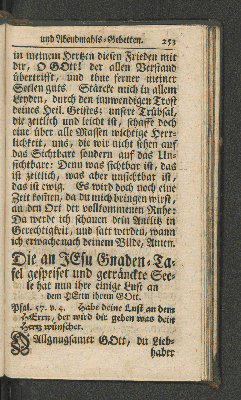 und Abendmahls-Gebetten. 253
in meinem Hertzen diesen Frieden mit
dir, O GOtt! der allen Verstand
übertrifft, und thue ferner meiner
Seelen guts. Stärcke mich in allem
Leyden, durch den innwendigen Trost
deines Heil. Geistes: unsere Trübsal,
die zeitlich und leicht ist, schafft doch
eine über alle Massen wichtige Herr-
lichkeit, uns, die wir nicht sehen auf
das Sichtbare sondern auf das Un-
sichtbare: Denn was sichtbar ist, das
ist zeitlich, was aber unsichtbar ist,
das ist ewig. Es wird doch noch eine
Zeit kosten, da du mich bringen wirst,
an den Ort der vollkommenen Ruhe:
Da werde ich schauen dein Antlitz in
Gerechtigkeit, und satt werden, wann
ich erwache nach deinem Bilde, Amen.
Die an JEsu Gnaden-Ta-
fel gespeiset und getränckte See-
le hat nun ihre einige Lust an
dem HErrn ihrem GOtt.
Psal. 37. v. 4. Habe deine Lust an dem
HErrn, der wird dir geben was dein
Hertz wünschet.
O Allgnugsamer GOtt, du Lieb-
haber